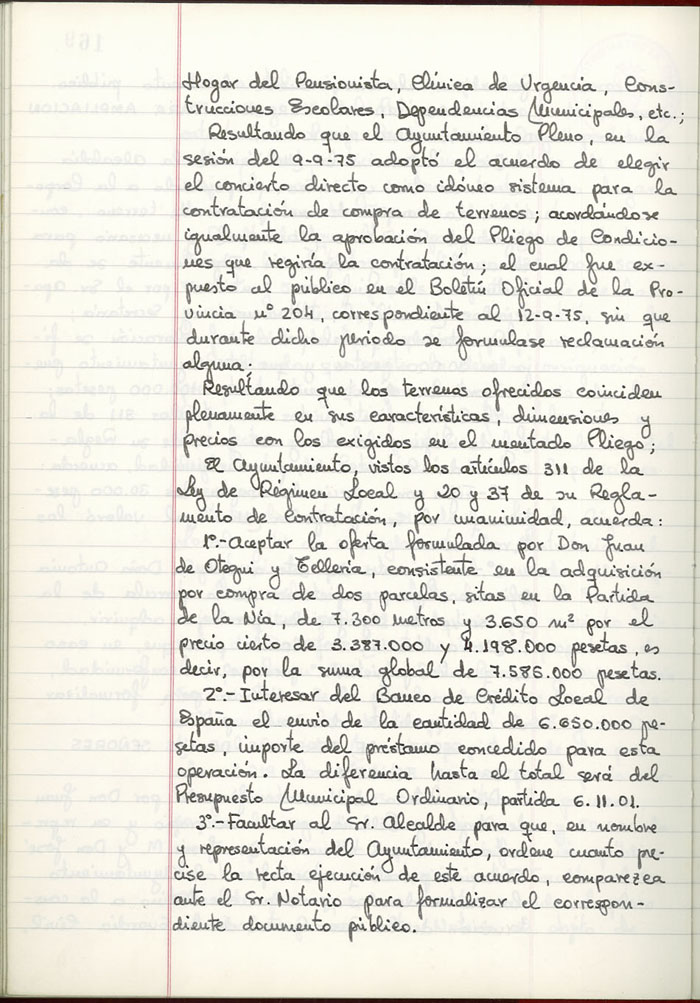 Hogar del Pensionista, Clínica de Urgencia, Cons-
trucciones Escolares, Dependencias Municipales, etc.;
Resultando que el Ayuntamiento Pleno, en la
sesión del 9-9-75 adoptó el acuerdo de elegir
el concierto directo como idóneo sistema para la
contratación de compra de terrenos; acordándose
igualmente la aprobación del Pliego de Condicio-
nes que regiría la contratación; el cual fue ex-
puesto al público en el Boletín Oficial de la Pro-
vincia nº 204, correspondiente al 12-9-75, sin que
durante dicho periodo se formulase reclamación
alguna;
Resultando que los terrenos ofrecidos coinciden
plenamente en sus características, dimensiones y
precios con los exigidos en el mentado Pliego;
El Ayuntamiento, vistos los artículos 311 de la
Ley de Régimen Local y 20 y 37 de su Regla-
mento de Contratación, por unanimidad, acuerda:
1º.-Aceptar la oferta formulada por Don Juan
de Otegui y Tellería, consistente en la adquisición
por compra de dos parcelas, sitas en la Partida
de la Nía, de 7.300 metros y 3.650 m² por el
precio cierto de 3.387.000 y 4.198.000 pesetas, es
decir, por la suma global de 7.585.000 pesetas.
2º.-Interesar del Banco de Crédito Local de
España el envío de la cantidad de 6.650.000 pe-
setas, importe del préstamo concedido para esta
operación. La diferencia hasta el total será del
Presupuesto Municipal Ordinario, partida 6.11.01.
3º.-Facultar al Sr. Alcalde para que, en nombre
y representación del Ayuntamiento, ordene cuanto pre-
cise la recta ejecución de este acuerdo, comparezca
ante el Sr. Notario para formalizar el correspon-
diente documento público.